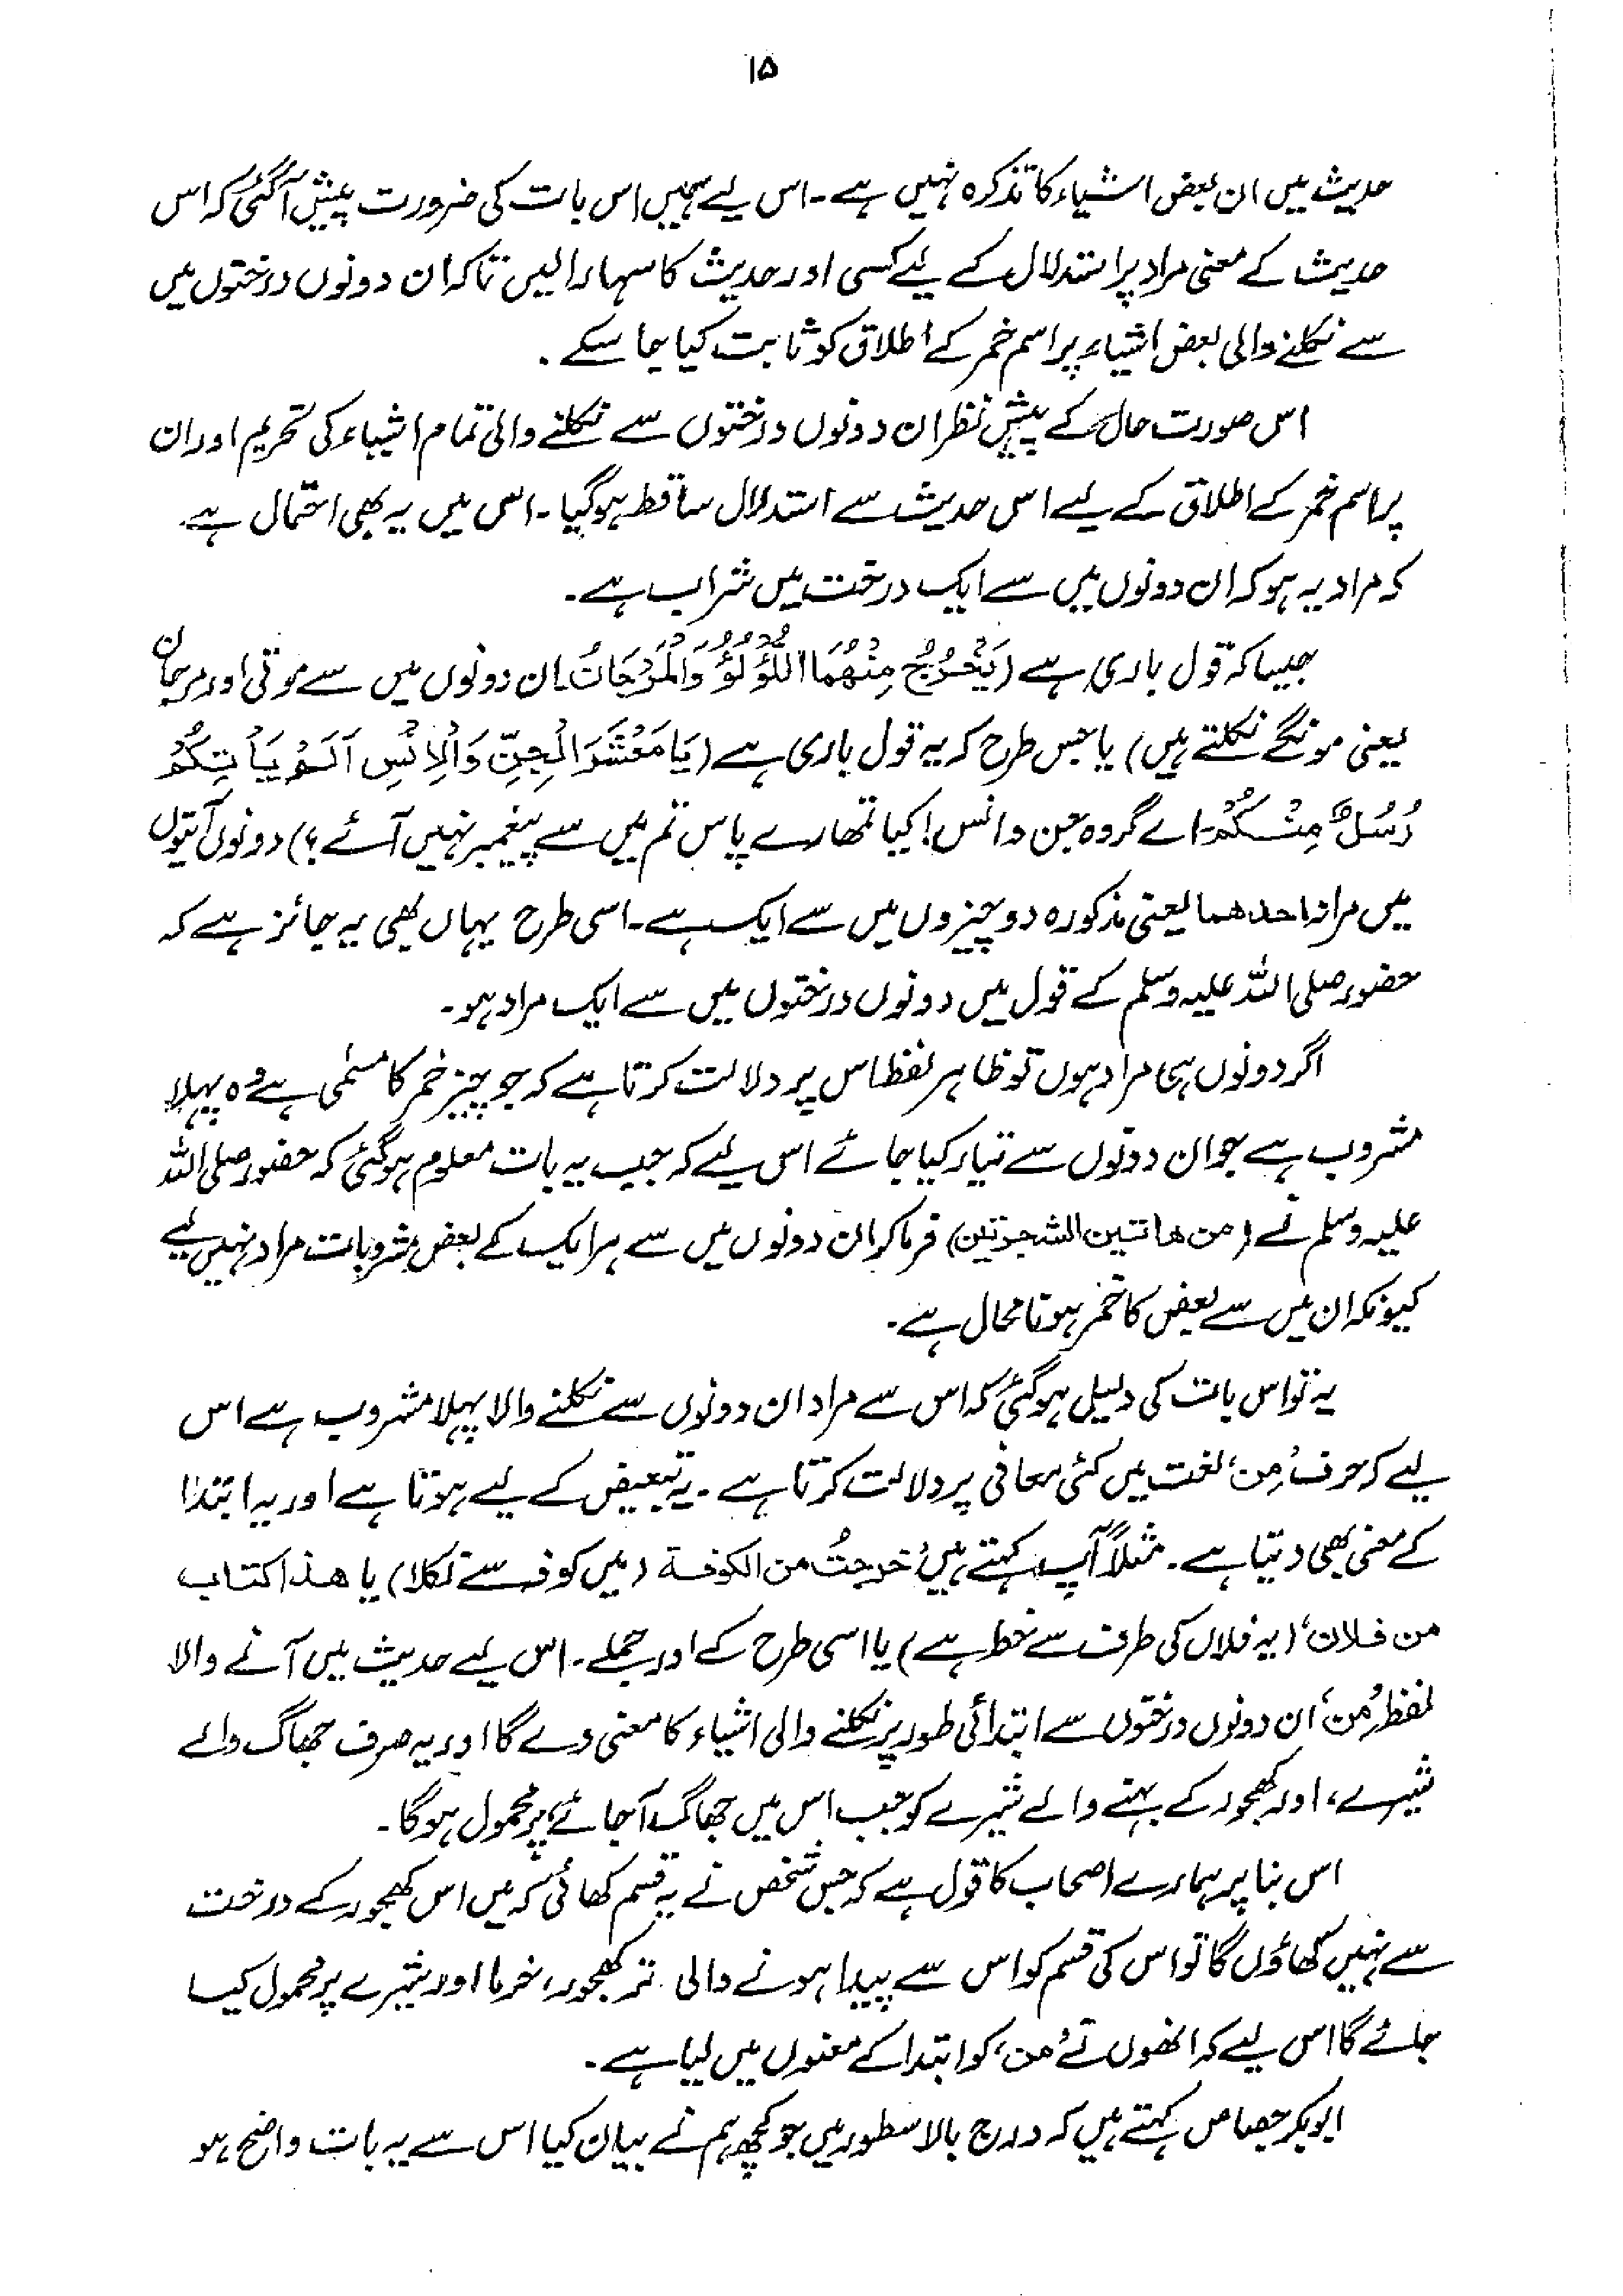 ۱۵
حدیث میں ان بعض اشیاء کا تذکرہ نہیں ہے۔ اس لیے ہمیں اس بات کی ضرورت پیش آگئی کہ اس
حدیث کے معنی مراد پر استدلال کے لیے کسی اور حدیث کا سہارا لیں تاکہ ان دونوں درختوں میں
سے نکلنے والی بعض اشیاء پر اسم خمر کے اطلاق کو ثابت کیا جا سکے۔
اس صورت حال کے پیش نظر ان دونوں درختوں سے نکلنے والی تمام اشیاء کی تحریم اور ان
پر اسم خمر کے اطلاق کے لیے اس حدیث سے استدلال ساقط ہوگیا۔ اس میں یہ بھی احتمال ہے
کہ مراد یہ ہو کہ ان دونوں میں سے ایک درخت میں شراب ہے۔
جیسا کہ قول باری ہے (يَخْرُجُ مِنْهُمَا اللُّؤْلُؤُ وَالْمَرْجَانُ۔ ان دونوں میں سے موتی اور مرجان
یعنی مونگے نکلتے ہیں) یا جس طرح کہ یہ قول باری ہے (يَا مَعْشَرَ الْجِنِّ وَالْاِنْسِ اَلَمْ يَأْتِكُمْ
رُسُلٌ مِنْكُمْ۔ اے گروہ جن و انس! کیا تمھارے پاس تم میں سے پیغمبر نہیں آئے؟) دونوں آیتوں
میں مراد احدھما یعنی مذکورہ دو چیزوں میں سے ایک ہے۔ اسی طرح یہاں بھی یہ جائز ہے کہ
حضور صلی اللہ علیہ وسلم کے قول میں دونوں درختوں میں سے ایک مراد ہو۔
اگر دونوں ہی مراد ہوں تو ظاہر لفظ اس پر دلالت کرتا ہے کہ جو چیز خمر کا مسمٰی ہے وہ پہلا
مشروب ہے جو ان دونوں سے تیار کیا جائے اس لیے کہ جب یہ بات معلوم ہوگئی کہ حضور صلی اللہ
علیہ وسلم نے (من ھاتین الشجرتین) فرما کر ان دونوں میں سے ہر ایک کے بعض مشروبات مراد نہیں لیے
کیونکہ ان میں سے بعض کا خمر ہونا محال ہے۔
یہ تو اس بات کی دلیل ہوگئی کہ اس سے مراد ان دونوں سے نکلنے والا پہلا مشروب ہے اس
لیے کہ حرف ’مِن‘ لغت میں کئی معانی پر دلالت کرتا ہے۔ یہ تبعیض کے لیے ہوتا ہے اور یہ ابتدا
کے معنی بھی دیتا ہے۔ مثلاً آپ کہتے ہیں ’خرجتُ من الکوفۃ (میں کوفہ سے نکلا) یا ھذا کتاب
من فلان‘ (یہ فلاں کی طرف سے خط ہے) یا اسی طرح کے اور جملے۔ اس لیے حدیث میں آنے والا
لفظ ’مِن‘ ان دونوں درختوں سے ابتدائی طور پر نکلنے والی اشیاء کا معنی دے گا اور یہ صرف جھاگ والے
شیرے، اور کھجور کے بہنے والے شیرے کو جب اس میں جھاگ آجائے، پر محمول ہوگا۔
اس بنا پر ہمارے اصحاب کا قول ہے کہ جس شخص نے یہ قسم کھائی کہ میں اس کھجور کے درخت
سے نہیں کھاؤں گا تو اس کی قسم کو اس سے پیدا ہونے والی تر کھجور، خرما اور شیرے پر محمول کیا
جائے گا اس لیے کہ انھوں نے ’من‘ کو ابتدا کے معنوں میں لیا ہے۔
ابوبکر جصاص کہتے ہیں کہ درج بالا سطور میں جو کچھ ہم نے بیان کیا اس سے یہ بات واضح ہو